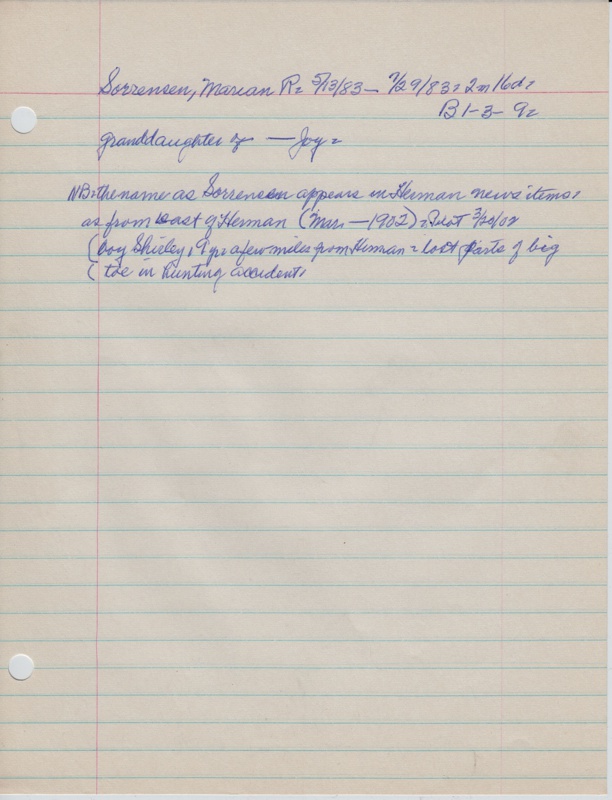 Sorrensen, Marian R= 5/13/83 — 7/29/83 = 2m 16d=
B 1-3-9=
granddaughter of — Joy=
NB= the name as Sorrensen appears in Herman news items=
as from east of Herman (Mar. — 1902) = 3/20/02
(boy Shirley, 9 yrs a few miles from Herman = lost parts of big
( toe in hunting accident=